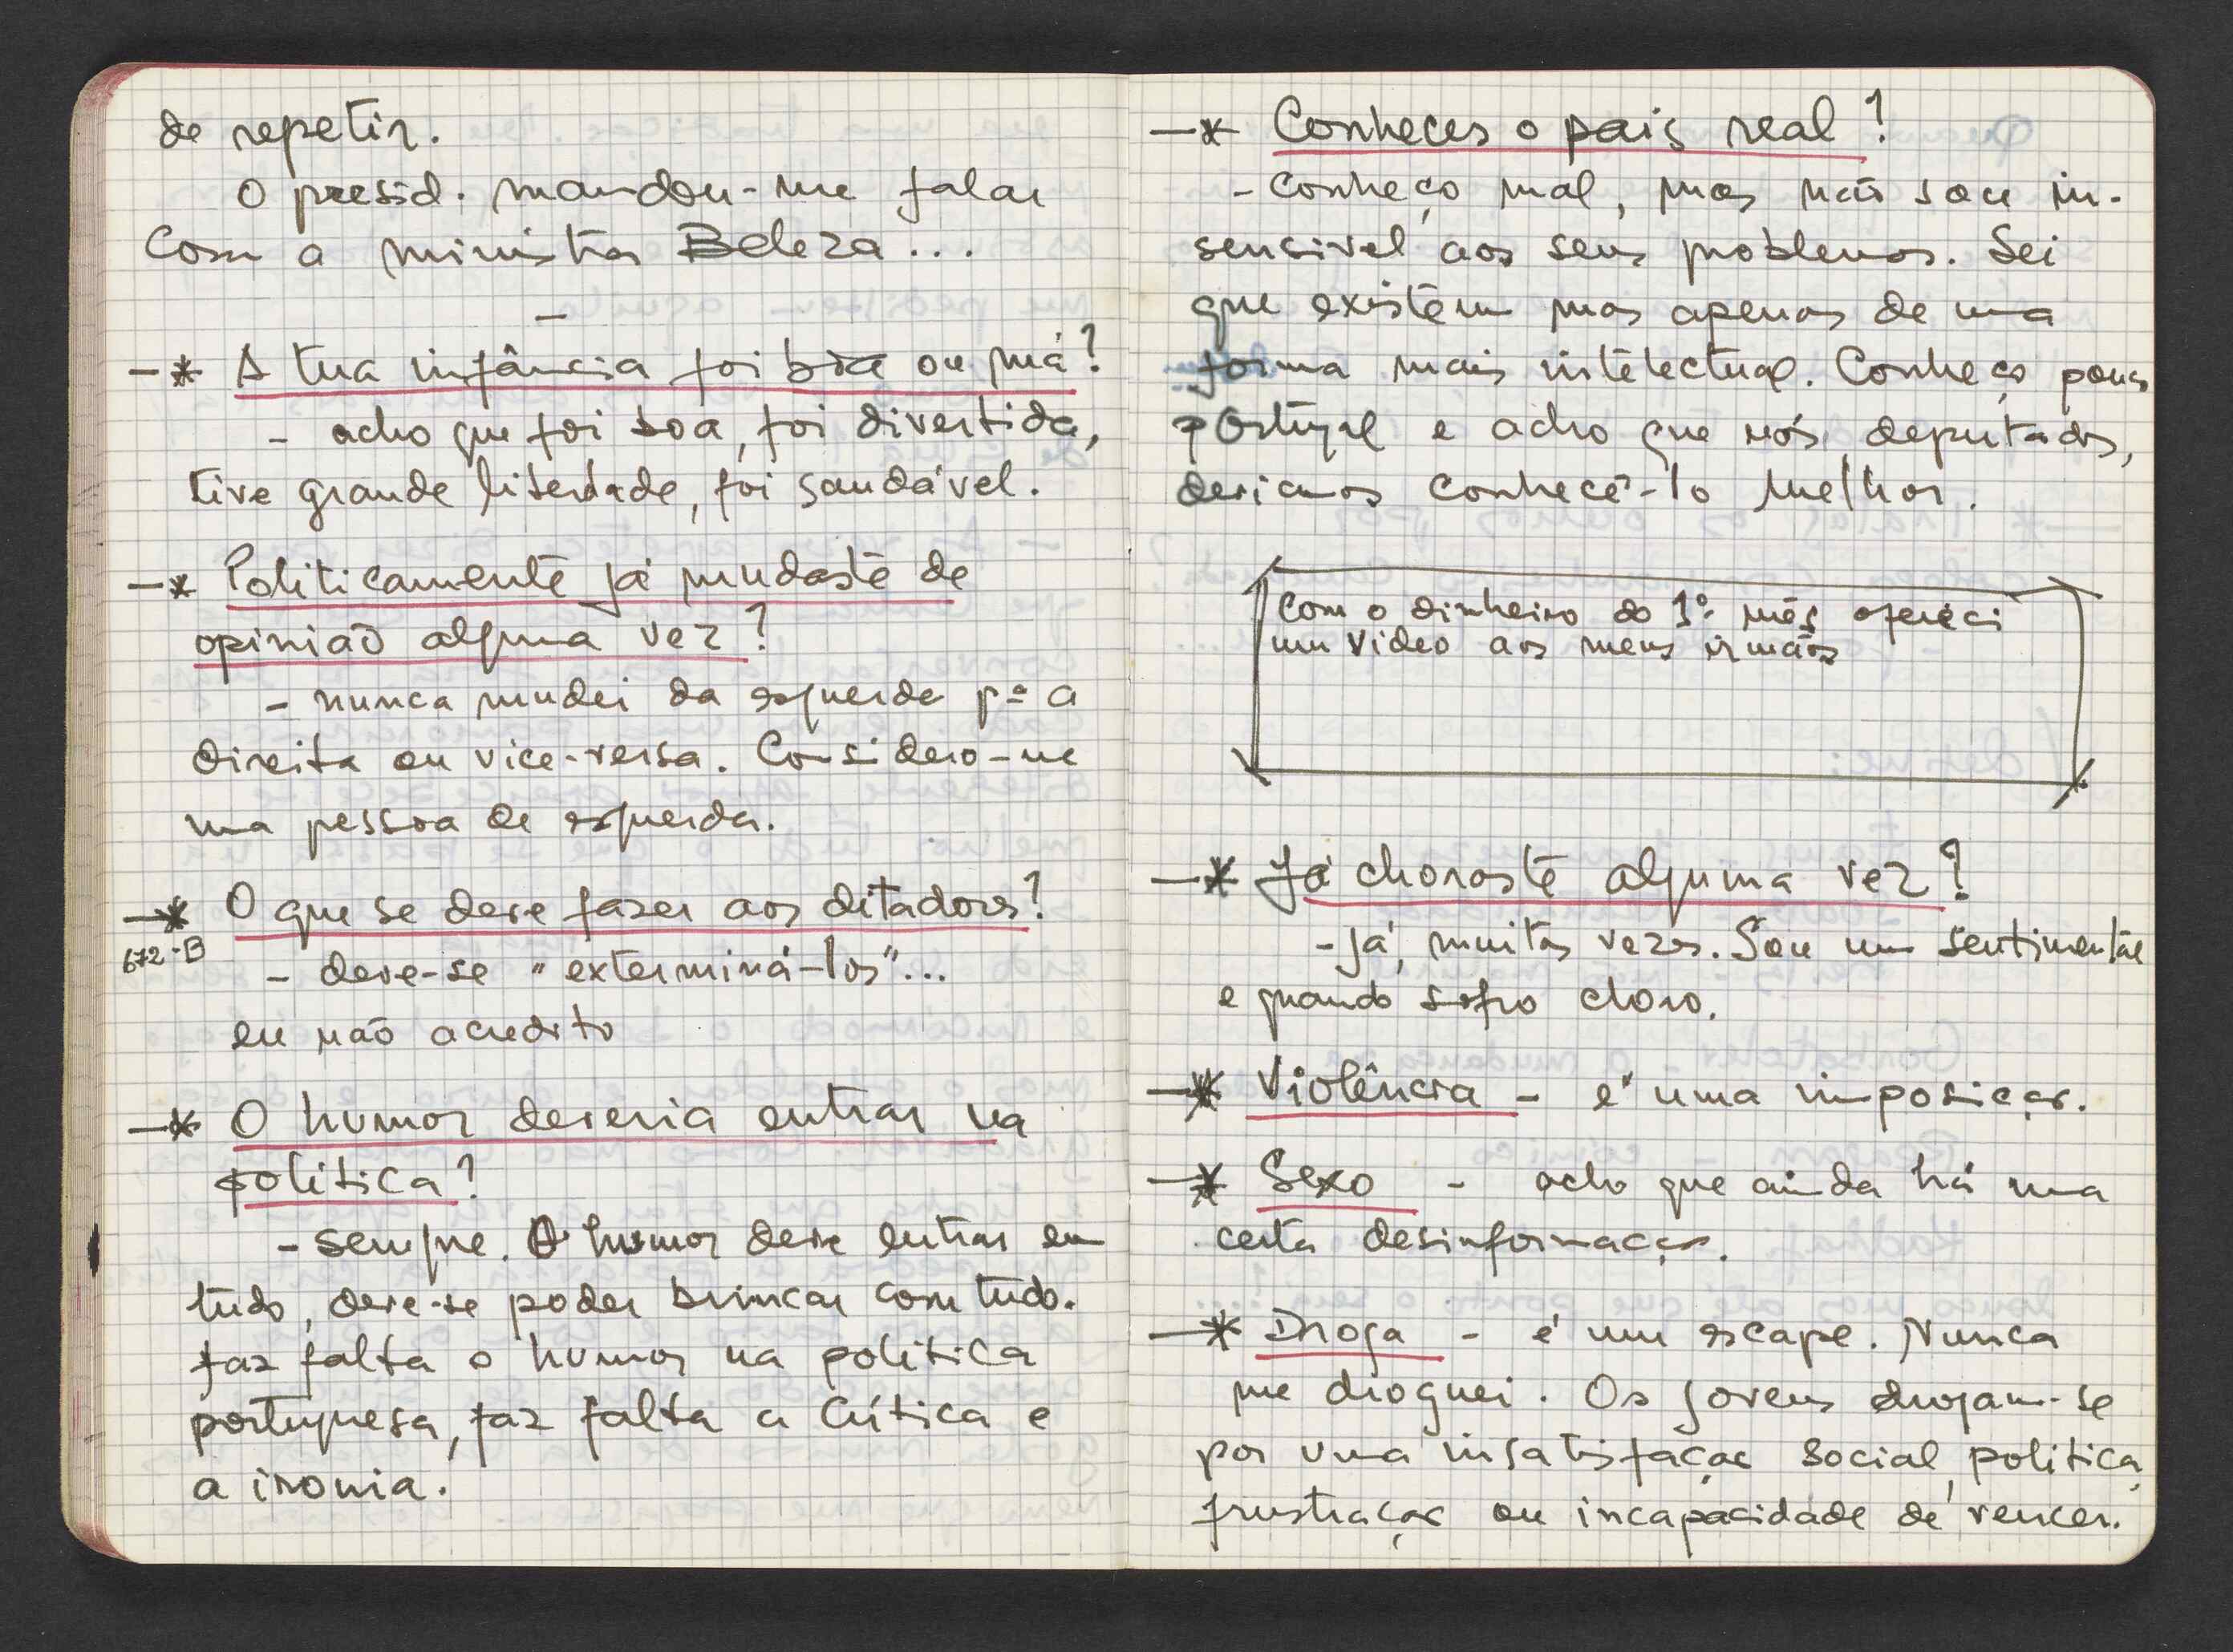 de repetir.
O presid. mandou-me falar
com a ministra Beleza...
—
—* A tua infância foi boa ou má?
- acho que foi boa, foi divertida,
tive grande liberdade, foi saudável.
—* Politicamente já mudaste de
opinião alguma vez?
- nunca mudei da esquerda pª a
direita ou vice-versa. Considero-me
uma pessoa de esquerda.
—* O que se deve fazer aos ditadores?
672-B
- deve-se "exterminá-los"...
eu não acredito
—* O humor deveria entrar na
política?
- sempre. O humor deve entrar em
tudo, deve-se poder brincar com tudo.
faz falta o humor na política
portuguesa, faz falta a crítica e
a ironia.
—* Conheces o pais real?
- Conheço mal, mas não sou in-
sensivel aos seus problemas. Sei
que existem mas apenas de uma
forma mais intelectual. Conheço pouco
Portugal e acho que nós, deputados,
deviamos conhecê-lo melhor.
Com o dinheiro do 1º mês ofereci
um video aos meus irmãos
—* Já choraste alguma vez?
- Já, muitas vezes. Sou um sentimental
e quando sofro choro.
—* Violência - é uma imposição.
—* Sexo - acho que ainda há uma
certa desinformação.
—* Droga - é um escape. Nunca
me droguei. Os jovens drogam-se
por uma insatisfação social, politica,
frustração ou incapacidade de vencer.